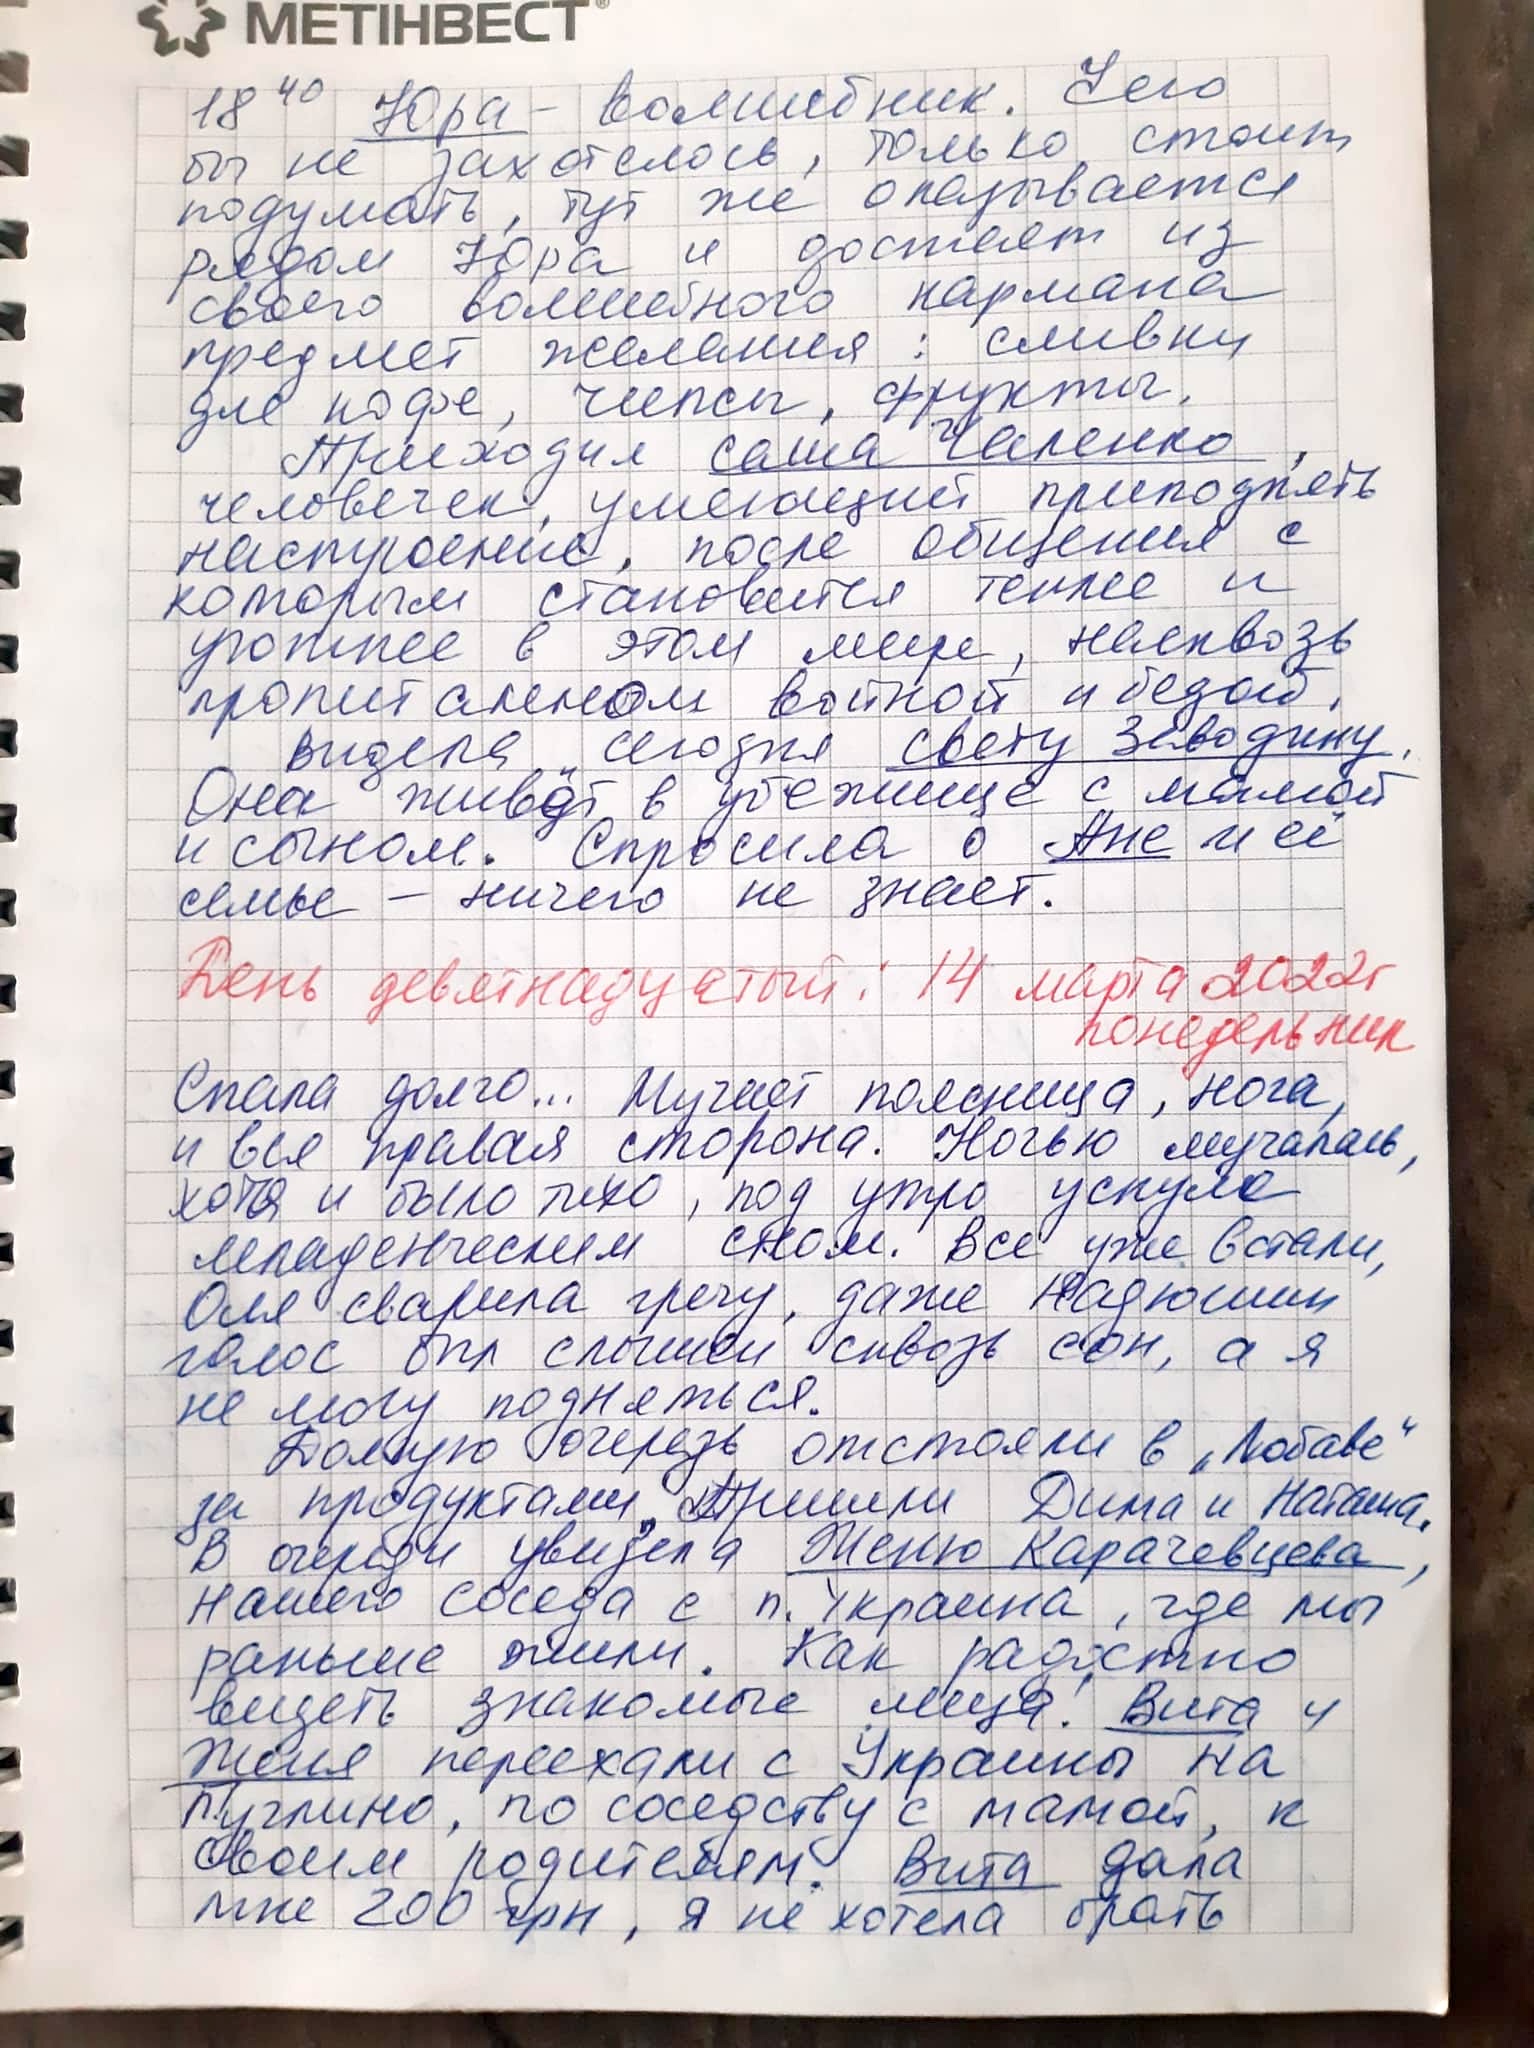 МЕТІНВЕСТ®
18 40 Юра - волшебник. Чего
бы не захотелось, только стоит
подумать, тут же оказывается
рядом Юра и достает из
своего волшебного кармана
предмет желания: сливки
для кофе, чипсы, фрукты.
Приходил Саша Чаленко,
человечек, умеющий приподнять
настроение, после общения с
которым становится теплее и
уютнее в этом мире, насквозь
пропитанном войной и бедой.
Видела сегодня Свету Заводину.
Она живёт в убежище с мамой
и сыном. Спросила о Ане и её
семье - ничего не знает.
День девятнадцатый: 14 марта 2022г
понедельник
Спала долго... Мучает поясница, нога,
и вся правая сторона. Ночью мучалась,
хотя и было тихо, под утро уснула
младенческим сном. Все уже встали,
Оля сварила гречу, даже Надюшин
голос был слышен сквозь сон, а я
не могу подняться.
Долгую очередь отстояли в „Любаве"
за продуктами. Пришли Дима и Наташа.
В очереди увидела Женю Карачевцева,
нашего соседа с п. Украина, где мы
раньше жили. Как радостно
видеть знакомые лица! Вита и
Женя переехали с Украины на
Пуглино, по соседству с мамой, к
своим родителям. Вита дала
мне 200 грн, я не хотела брать